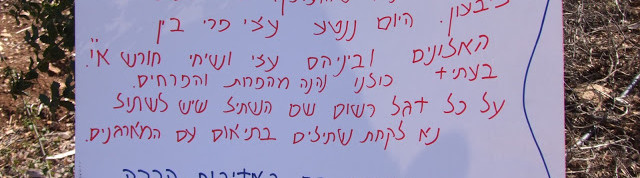 קיבצון. היום ננטע עצי פרי בין
האלונים וביניהם עצי ושיחי חורש א"י.
בעתיד כולנו נהנה מהפרות והפרחים.
על כל דגל רשום שם השתיל שיש לשתול
נא לקחת שתילים בתיאום עם המארגנים.